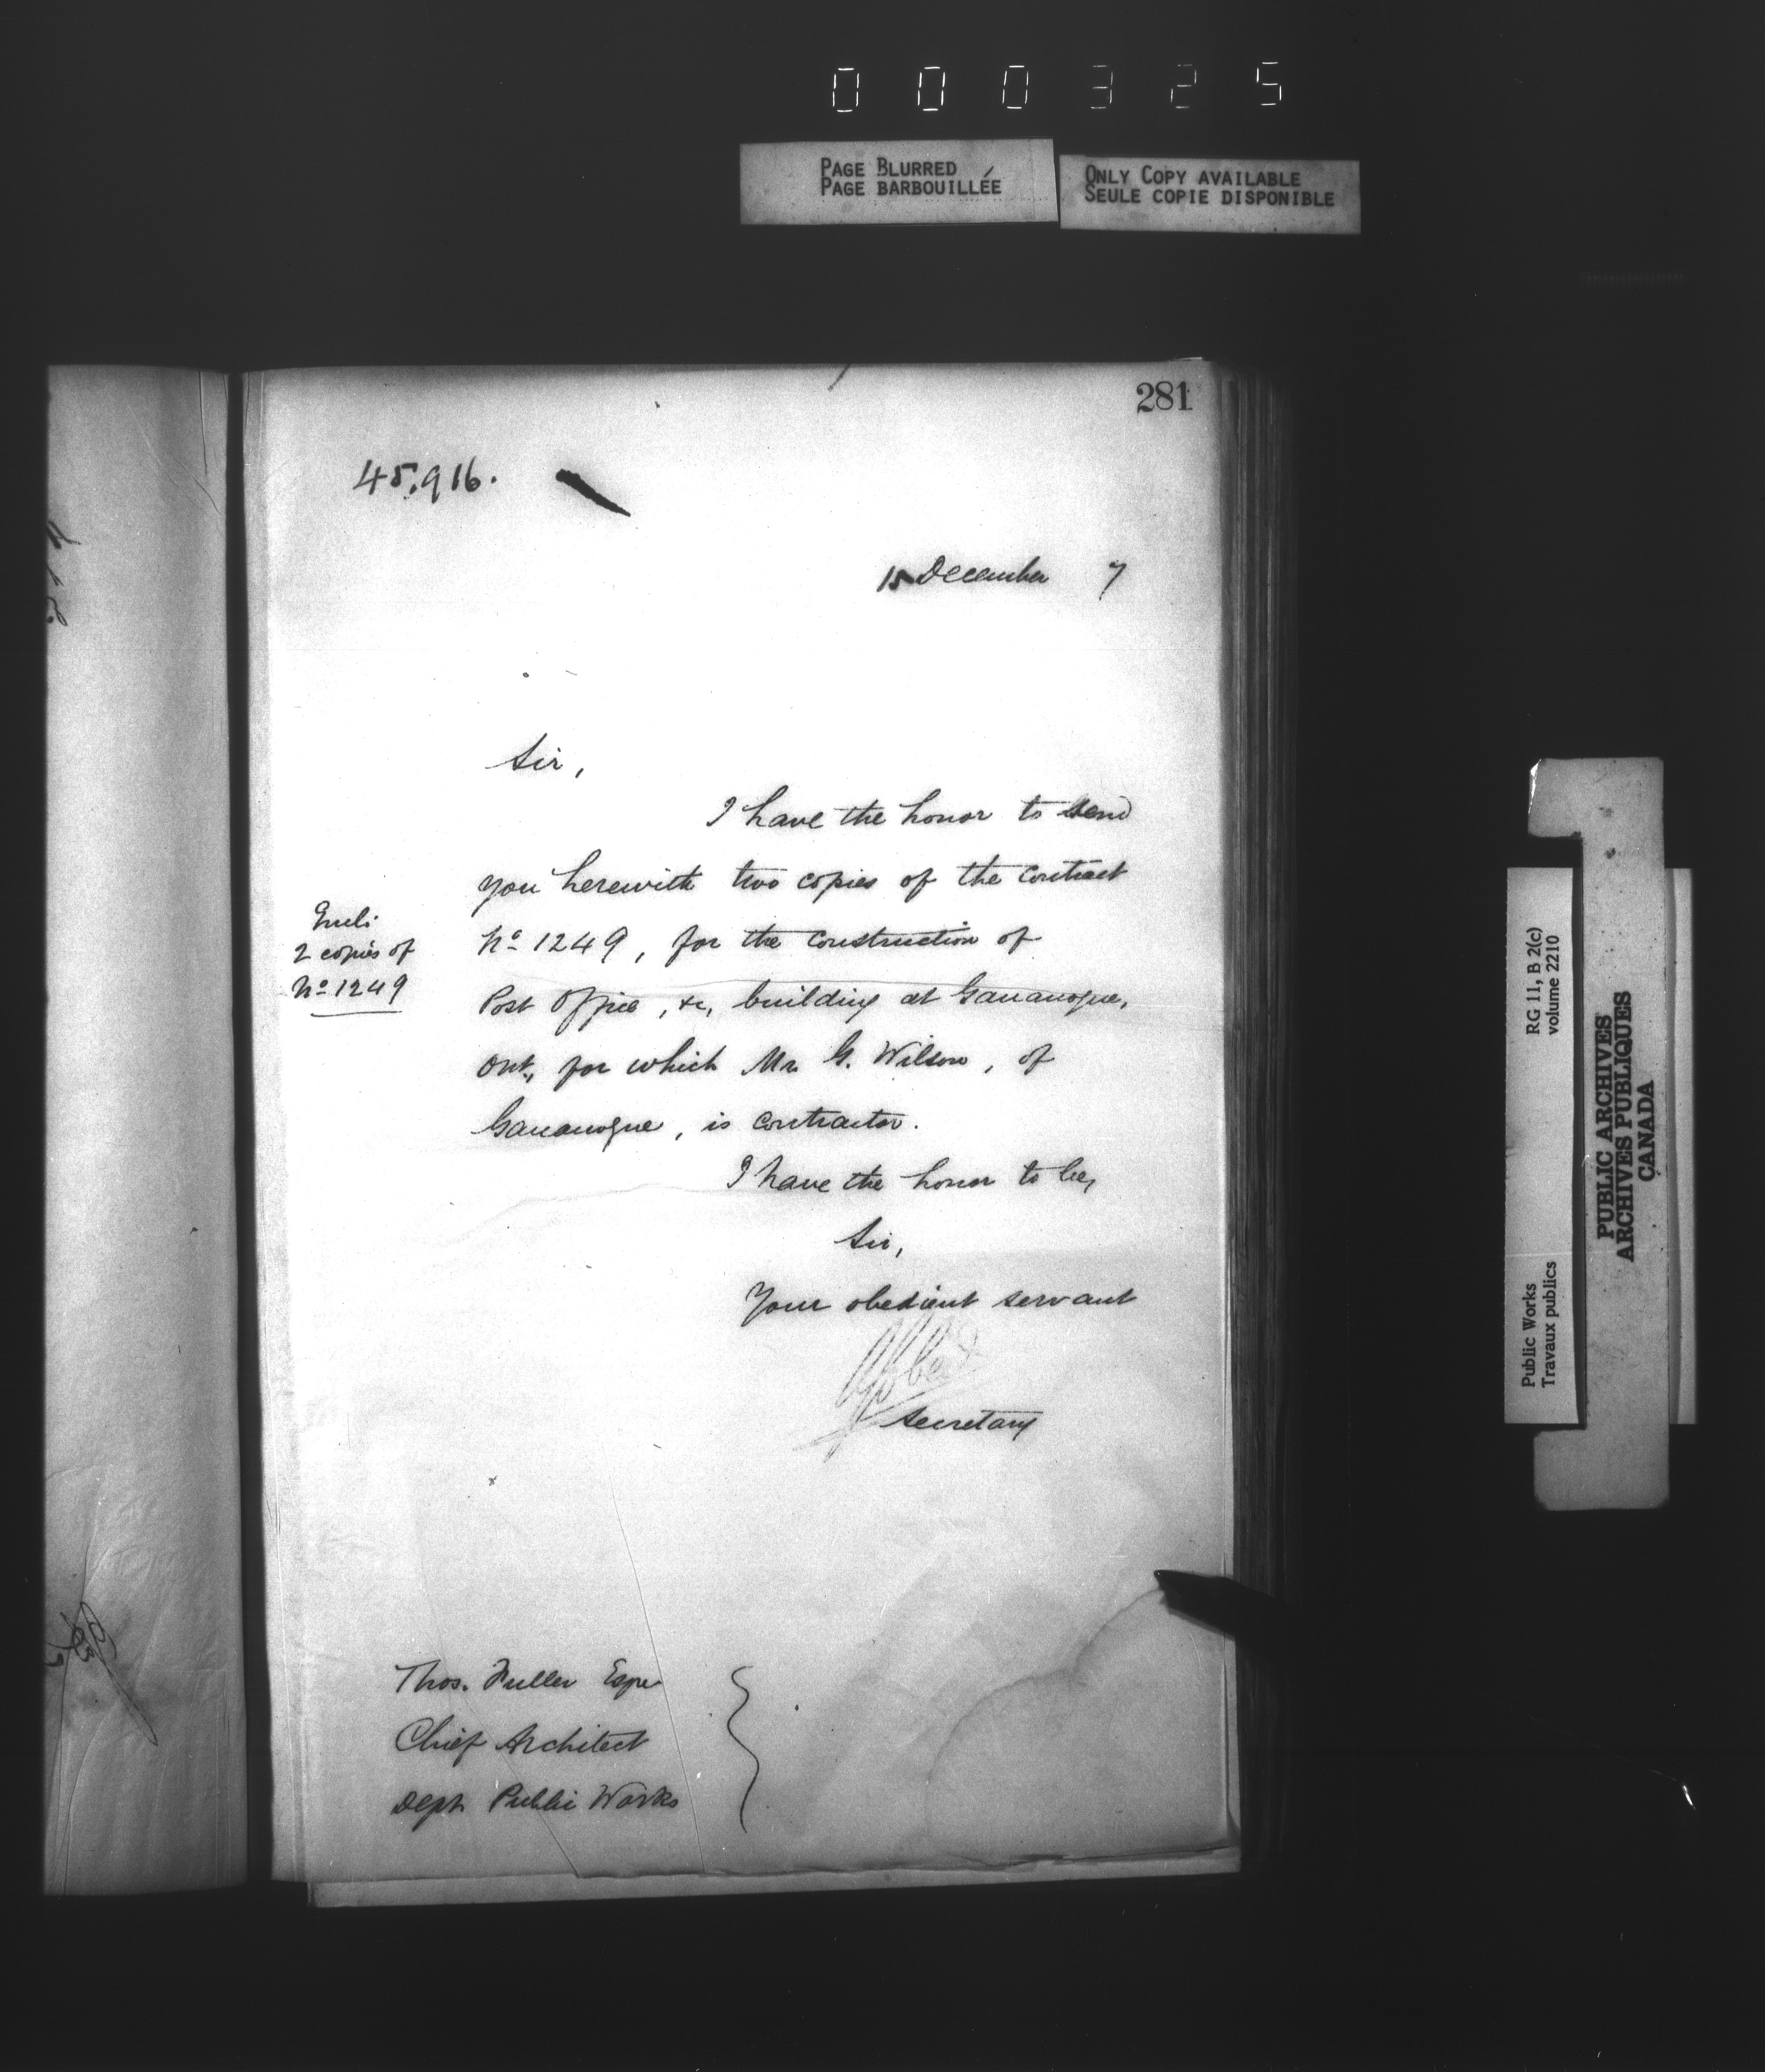 000325
PAGE BLURRED
PAGE BARBOUILLÉE
ONLY COPY AVAILABLE
SEULE COPIE DISPONIBLE
281
45,916.
15 December 7
Sir,
I have the honor to send
you herewith two copies of the contract
No 1249, for the construction of
Post Office, &c, building at Gananoque,
Ont., for which Mr. G. Wilson, of
Gananoque, is contractor.
Encl.
2 copies of
No 1249
I have the honor to be,
Sir,
Your obedient servant
Secretary
Thos. Fuller Esqre
Chief Architect
Dept. Public Works
RG 11, B 2(c)
volume 2210
Public Works
Travaux publics
PUBLIC ARCHIVES
ARCHIVES PUBLIQUES
CANADA